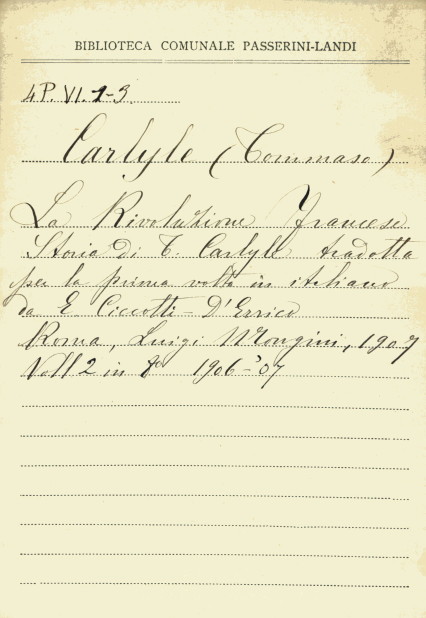 BIBLIOTECA COMUNALE PASSERINI-LANDI
4P. VI. 1-3.
Carlyle (Tommaso)
La Rivoluzione Francese
Storia di T. Carlyle tradotta
per la prima volta in italiano
da E Ciccotti - D'Errico
Roma, Luigi Mongini, 1907
Voll 2 in 8° 1906-'07